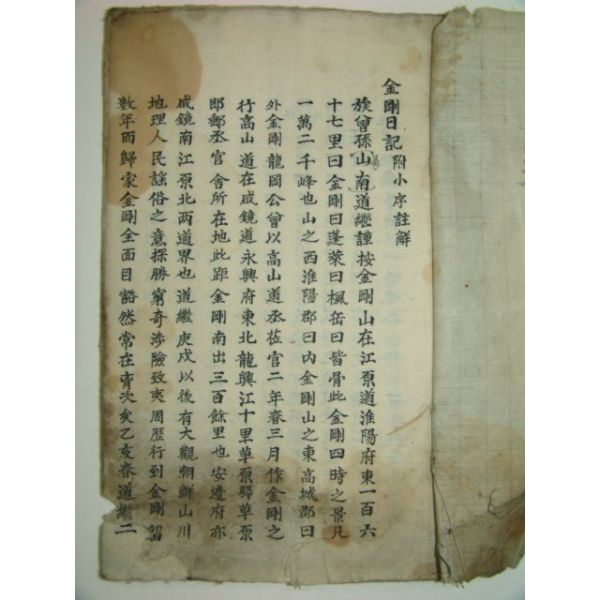 金剛日記 附小序註解
族曾孫山南道繼謹按金剛山在江原道淮陽府東一百六
十七里曰金剛曰蓬萊曰楓岳曰皆骨此金剛四時之景凡
一萬二千峰也山之西淮陽郡曰內金剛山之東高城郡曰
外金剛龍岡公曾以高山道丞莅官二年春三月作金剛之
行高山道在咸鏡道永興府東北龍興江十里草原驛草原
郎郵丞官舍所在地此距金剛南出三百餘里也安邊府亦
咸鏡南江原北两道界也道繼庚戌以後有大觀朝鮮山川
地理人民謠俗之意探勝窮奇涉險致夷周歷行到金剛留
數年而歸家金剛全面目豁然常在胷次矣乙亥春道繼二